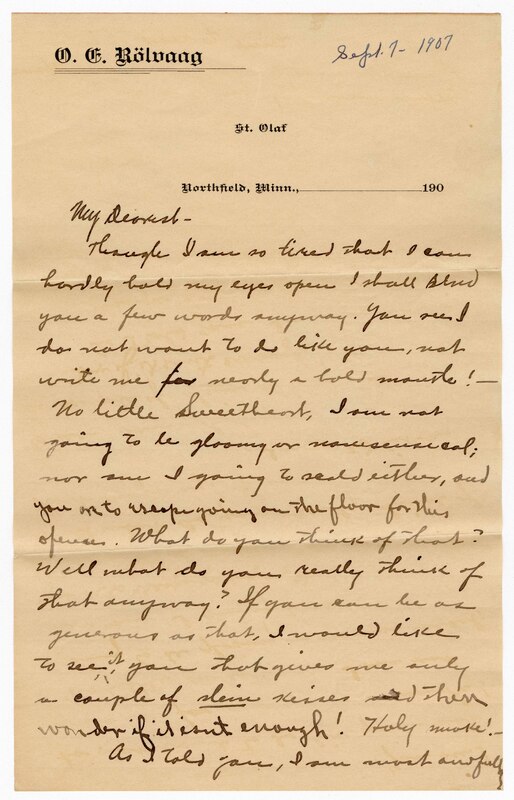 O. E. Rölvaag
Sept. 7 - 1907
St. Olaf
Northfield, Minn., 190
My Dearest -
Though I am so tired that I can
hardly hold my eyes open I shall send
you a few words anyway. You see I
do not want to do like you, not
write me for nearly a half month! -
No little Sweetheart, I am not
going to be gloomy or nonsensical;
nor am I going to scold either, and
you are to keep going on the floor for this
. What do you think of that?
Well what do you really think of
that anyway? If you can be as
generous as that, I would like
to see it, you that gives me only
a couple of slim kisses and then
wonder if it isn't enough! Holy smoke! -
As I told you, I am most awfully